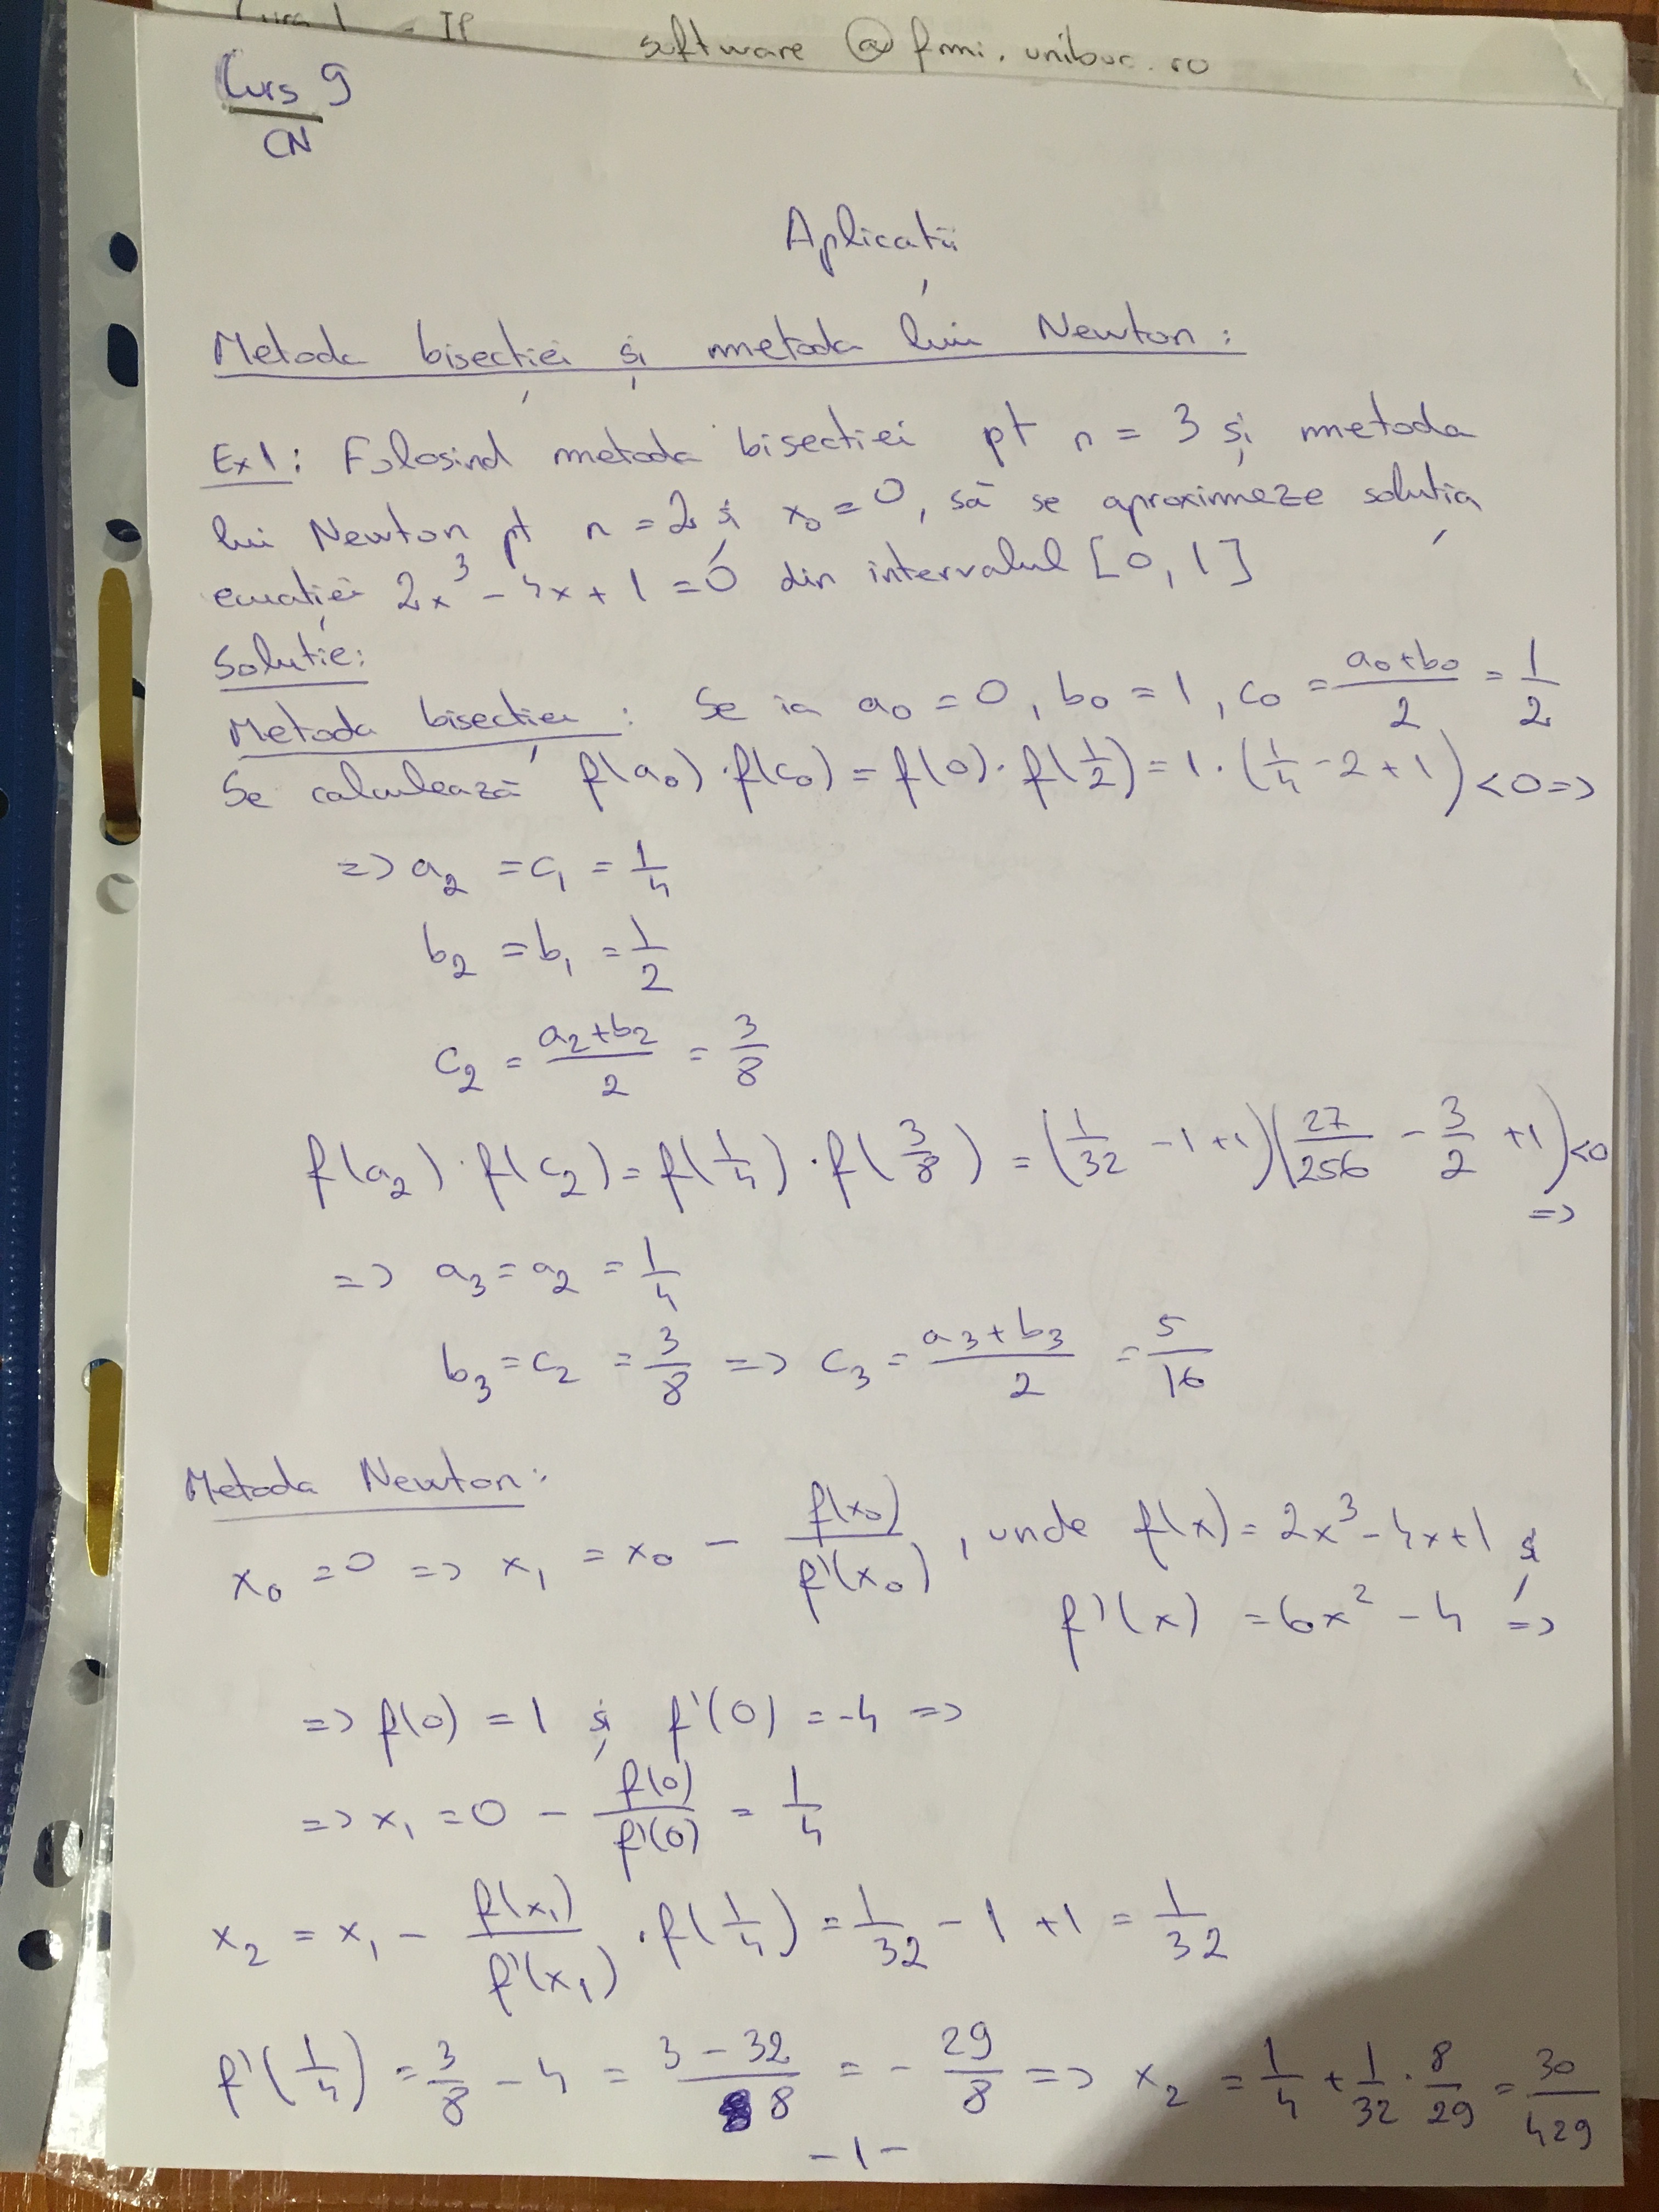 software @ fmi.unibuc.ro
Curs 9
CN
Aplicații
Metoda bisecției și metoda lui Newton:
Ex1: Folosind metoda bisecției pt n = 3 și metoda
lui Newton pt n = 2 și x₀ = 0, să se aproximeze soluția
ecuației 2x³ - 4x + 1 = 0 din intervalul [0, 1]
Soluție:
Metoda bisecției: Se ia a₀ = 0, b₀ = 1, c₀ = (a₀+b₀)/2 = 1/2
Se calculează f(a₀)·f(c₀) = f(0)·f(1/2) = 1·(1/4 - 2 + 1) < 0 =>
=> a₂ = c₁ = 1/4
b₂ = b₁ = 1/2
c₂ = (a₂+b₂)/2 = 3/8
f(a₂)·f(c₂) = f(1/4)·f(3/8) = (1/32 - 1 + 1)(27/256 - 3/2 + 1) < 0
=>
=> a₃ = a₂ = 1/4
b₃ = c₂ = 3/8 => c₃ = (a₃+b₃)/2 = 5/16
Metoda Newton:
x₀ = 0 => x₁ = x₀ - f(x₀)/f'(x₀), unde f(x) = 2x³ - 4x + 1 și
f'(x) = 6x² - 4 =>
=> f(0) = 1 și f'(0) = -4 =>
=> x₁ = 0 - f(0)/f'(0) = 1/4
x₂ = x₁ - f(x₁)/f'(x₁) · f(1/4) = 1/32 - 1 + 1 = 1/32
f'(1/4) = 3/8 - 4 = (3 - 32)/8 = -29/8 => x₂ = 1/4 + 1/32 · 8/29 = 30/429
- 1 -